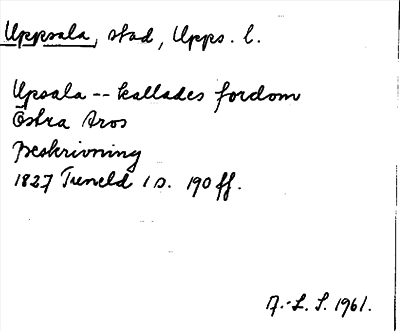 Uppsala, stad, Upps. l.
Upsala -- kallades fordom
Östra Aros
Beskrivning
1827 Tuneld 1 s. 190 ff.
A.-L. S. 1961.